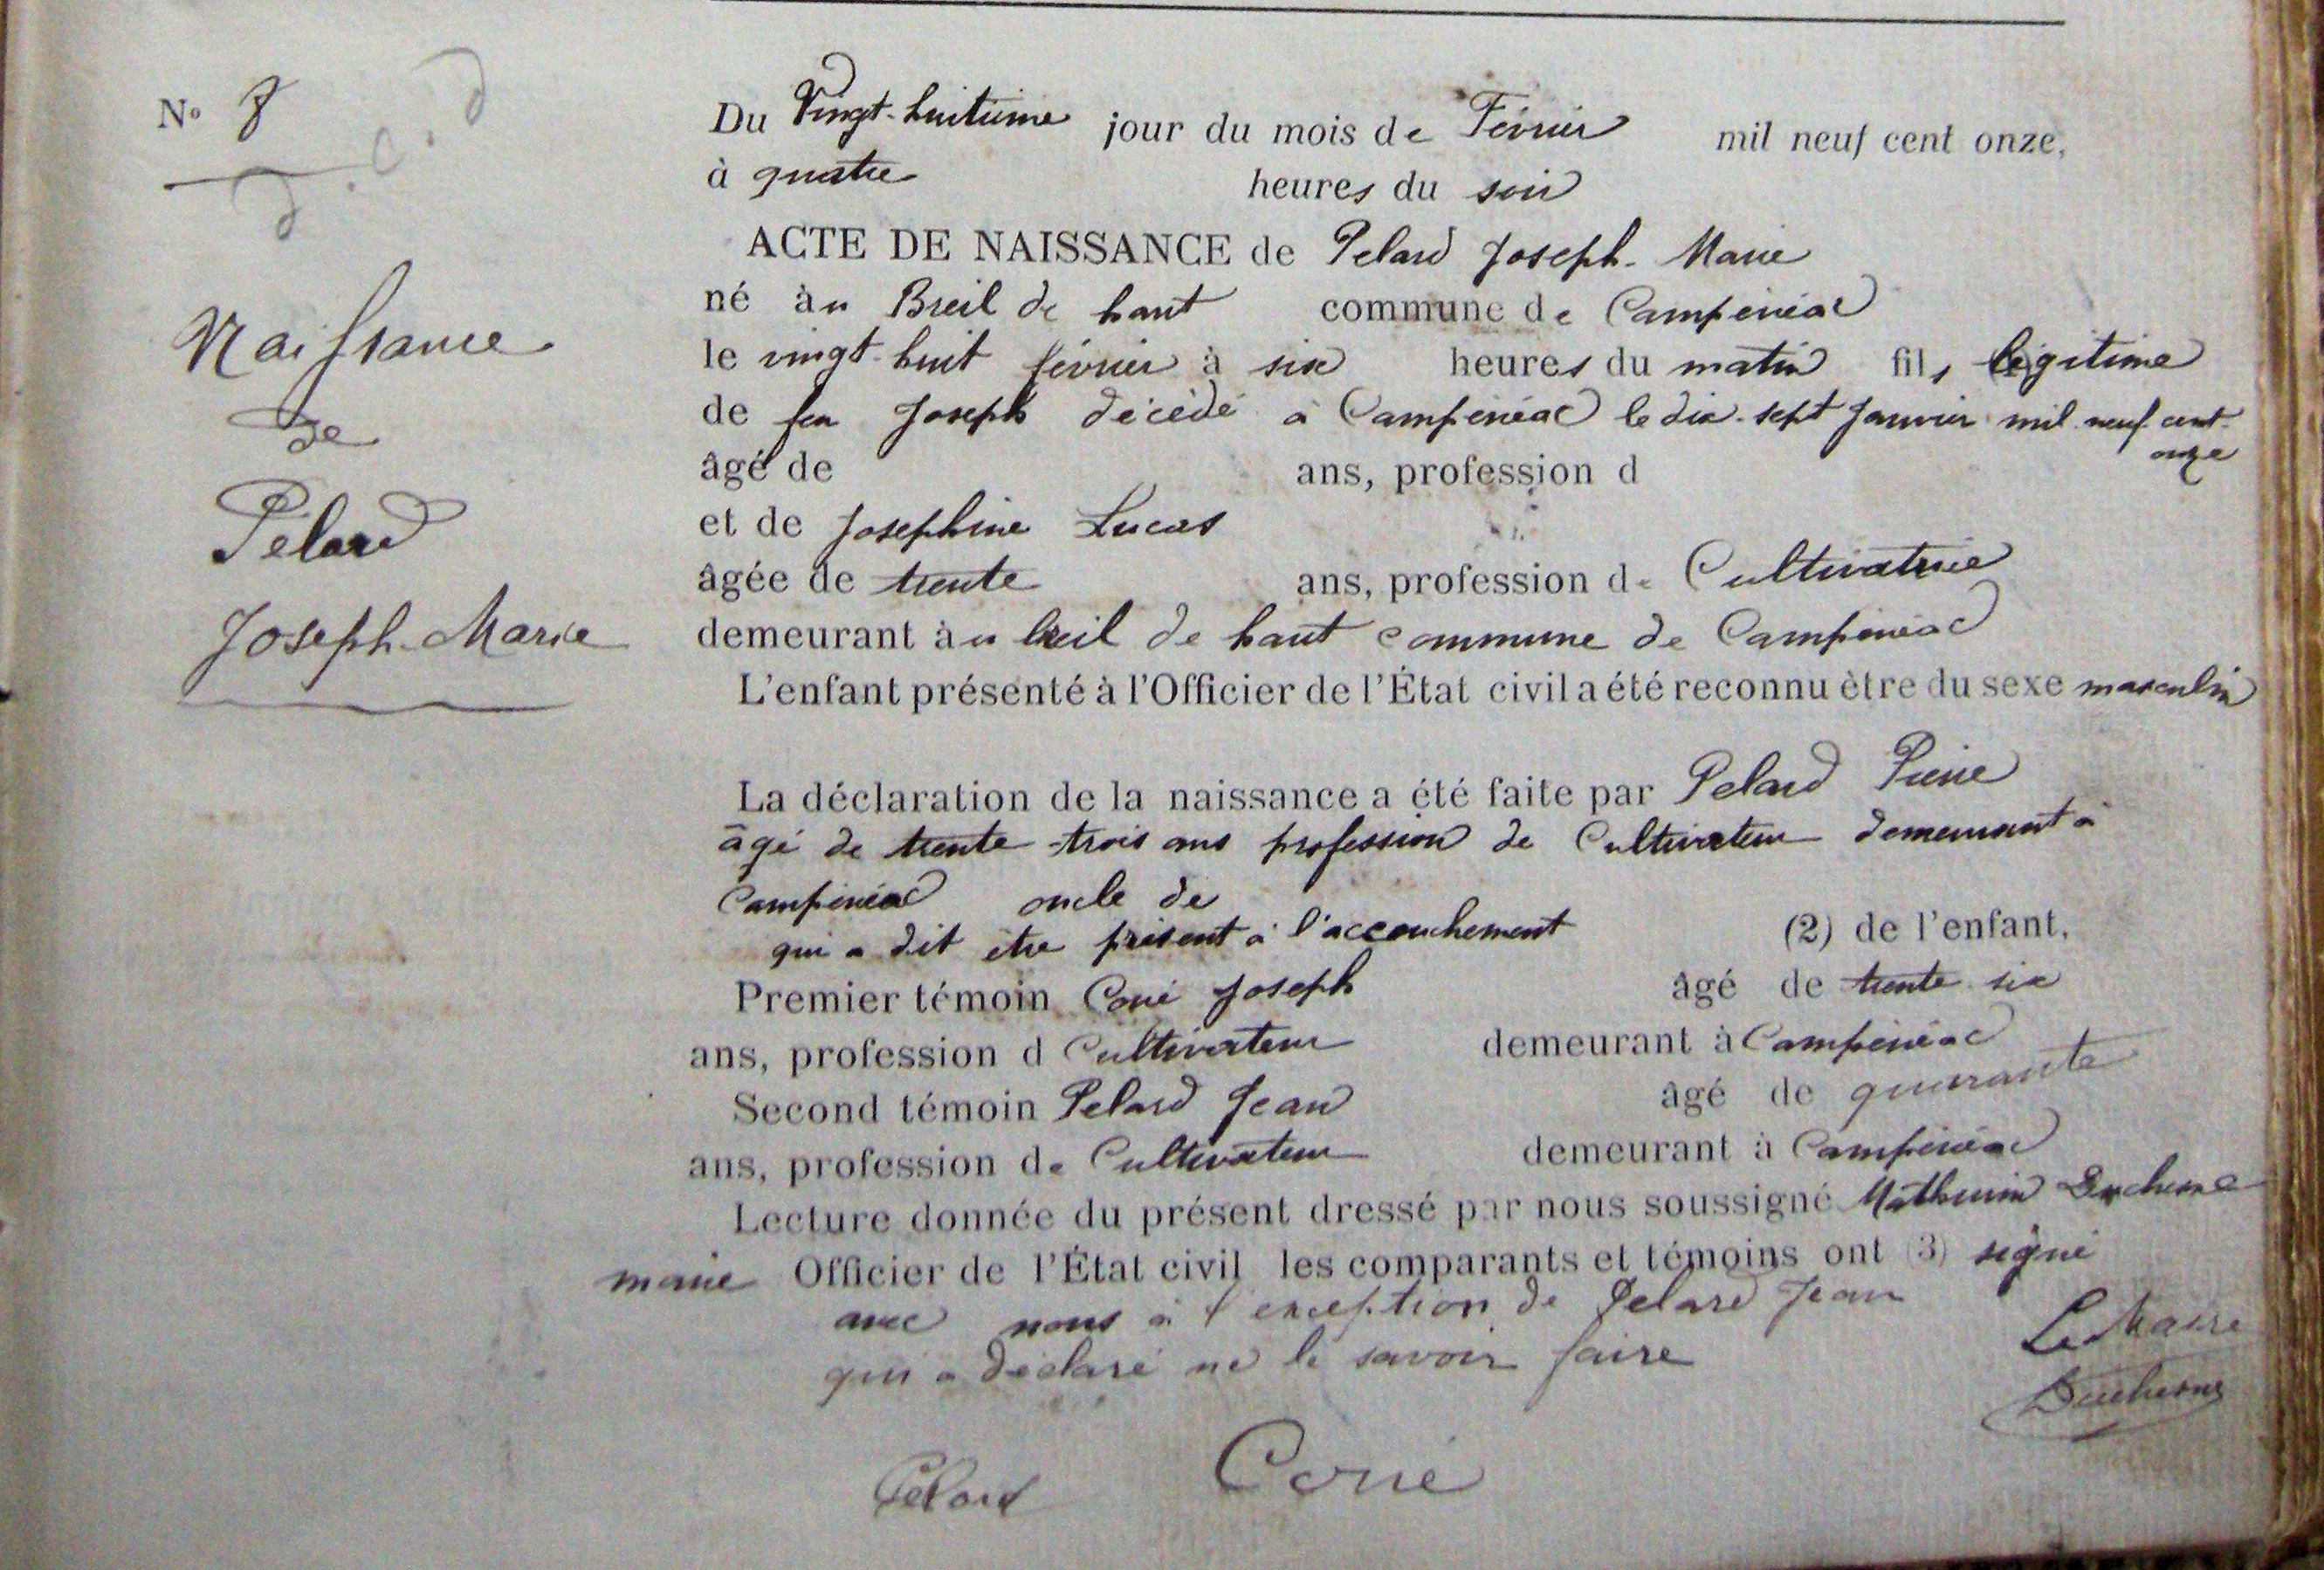 N° 8
d . c . d
Naissance
de
Pelard
Joseph-Marie
Du Vingt-huitième jour du mois de Février mil neuf cent onze,
à quatre heures du soir
ACTE DE NAISSANCE de Pelard Joseph-Marie
né au Breil de haut commune de Campénéac
le vingt-huit février à six heures du matin fils légitime
de feu Joseph décédé à Campénéac le dix-sept Janvier mil neuf cent-
onze
âgé de ans, profession d
et de Josephine Lucas
âgée de trente ans, profession de Cultivatrice
demeurant au breil de haut commune de Campénéac
L'enfant présenté à l'Officier de l'État civil a été reconnu être du sexe masculin
La déclaration de la naissance a été faite par Pelard Pierre
âgé de trente-trois ans profession de Cultivateur demeurant à
Campénéac oncle de
qui a dit être présent à l'accouchement (2) de l'enfant,
Premier témoin Coué Joseph âgé de trente six
ans, profession d Cultivateur demeurant à Campénéac
Second témoin Pelard Jean âgé de quarante
ans, profession de Cultivateur demeurant à Campénéac
Lecture donnée du présent dressé par nous soussigné Mathurin Duchesne
maire Officier de l'État civil les comparants et témoins ont (3) signé
avec nous à l'exception de Pelard Jean
qui a déclaré ne le savoir faire
Le Maire
Duchesne
Pelard Coué